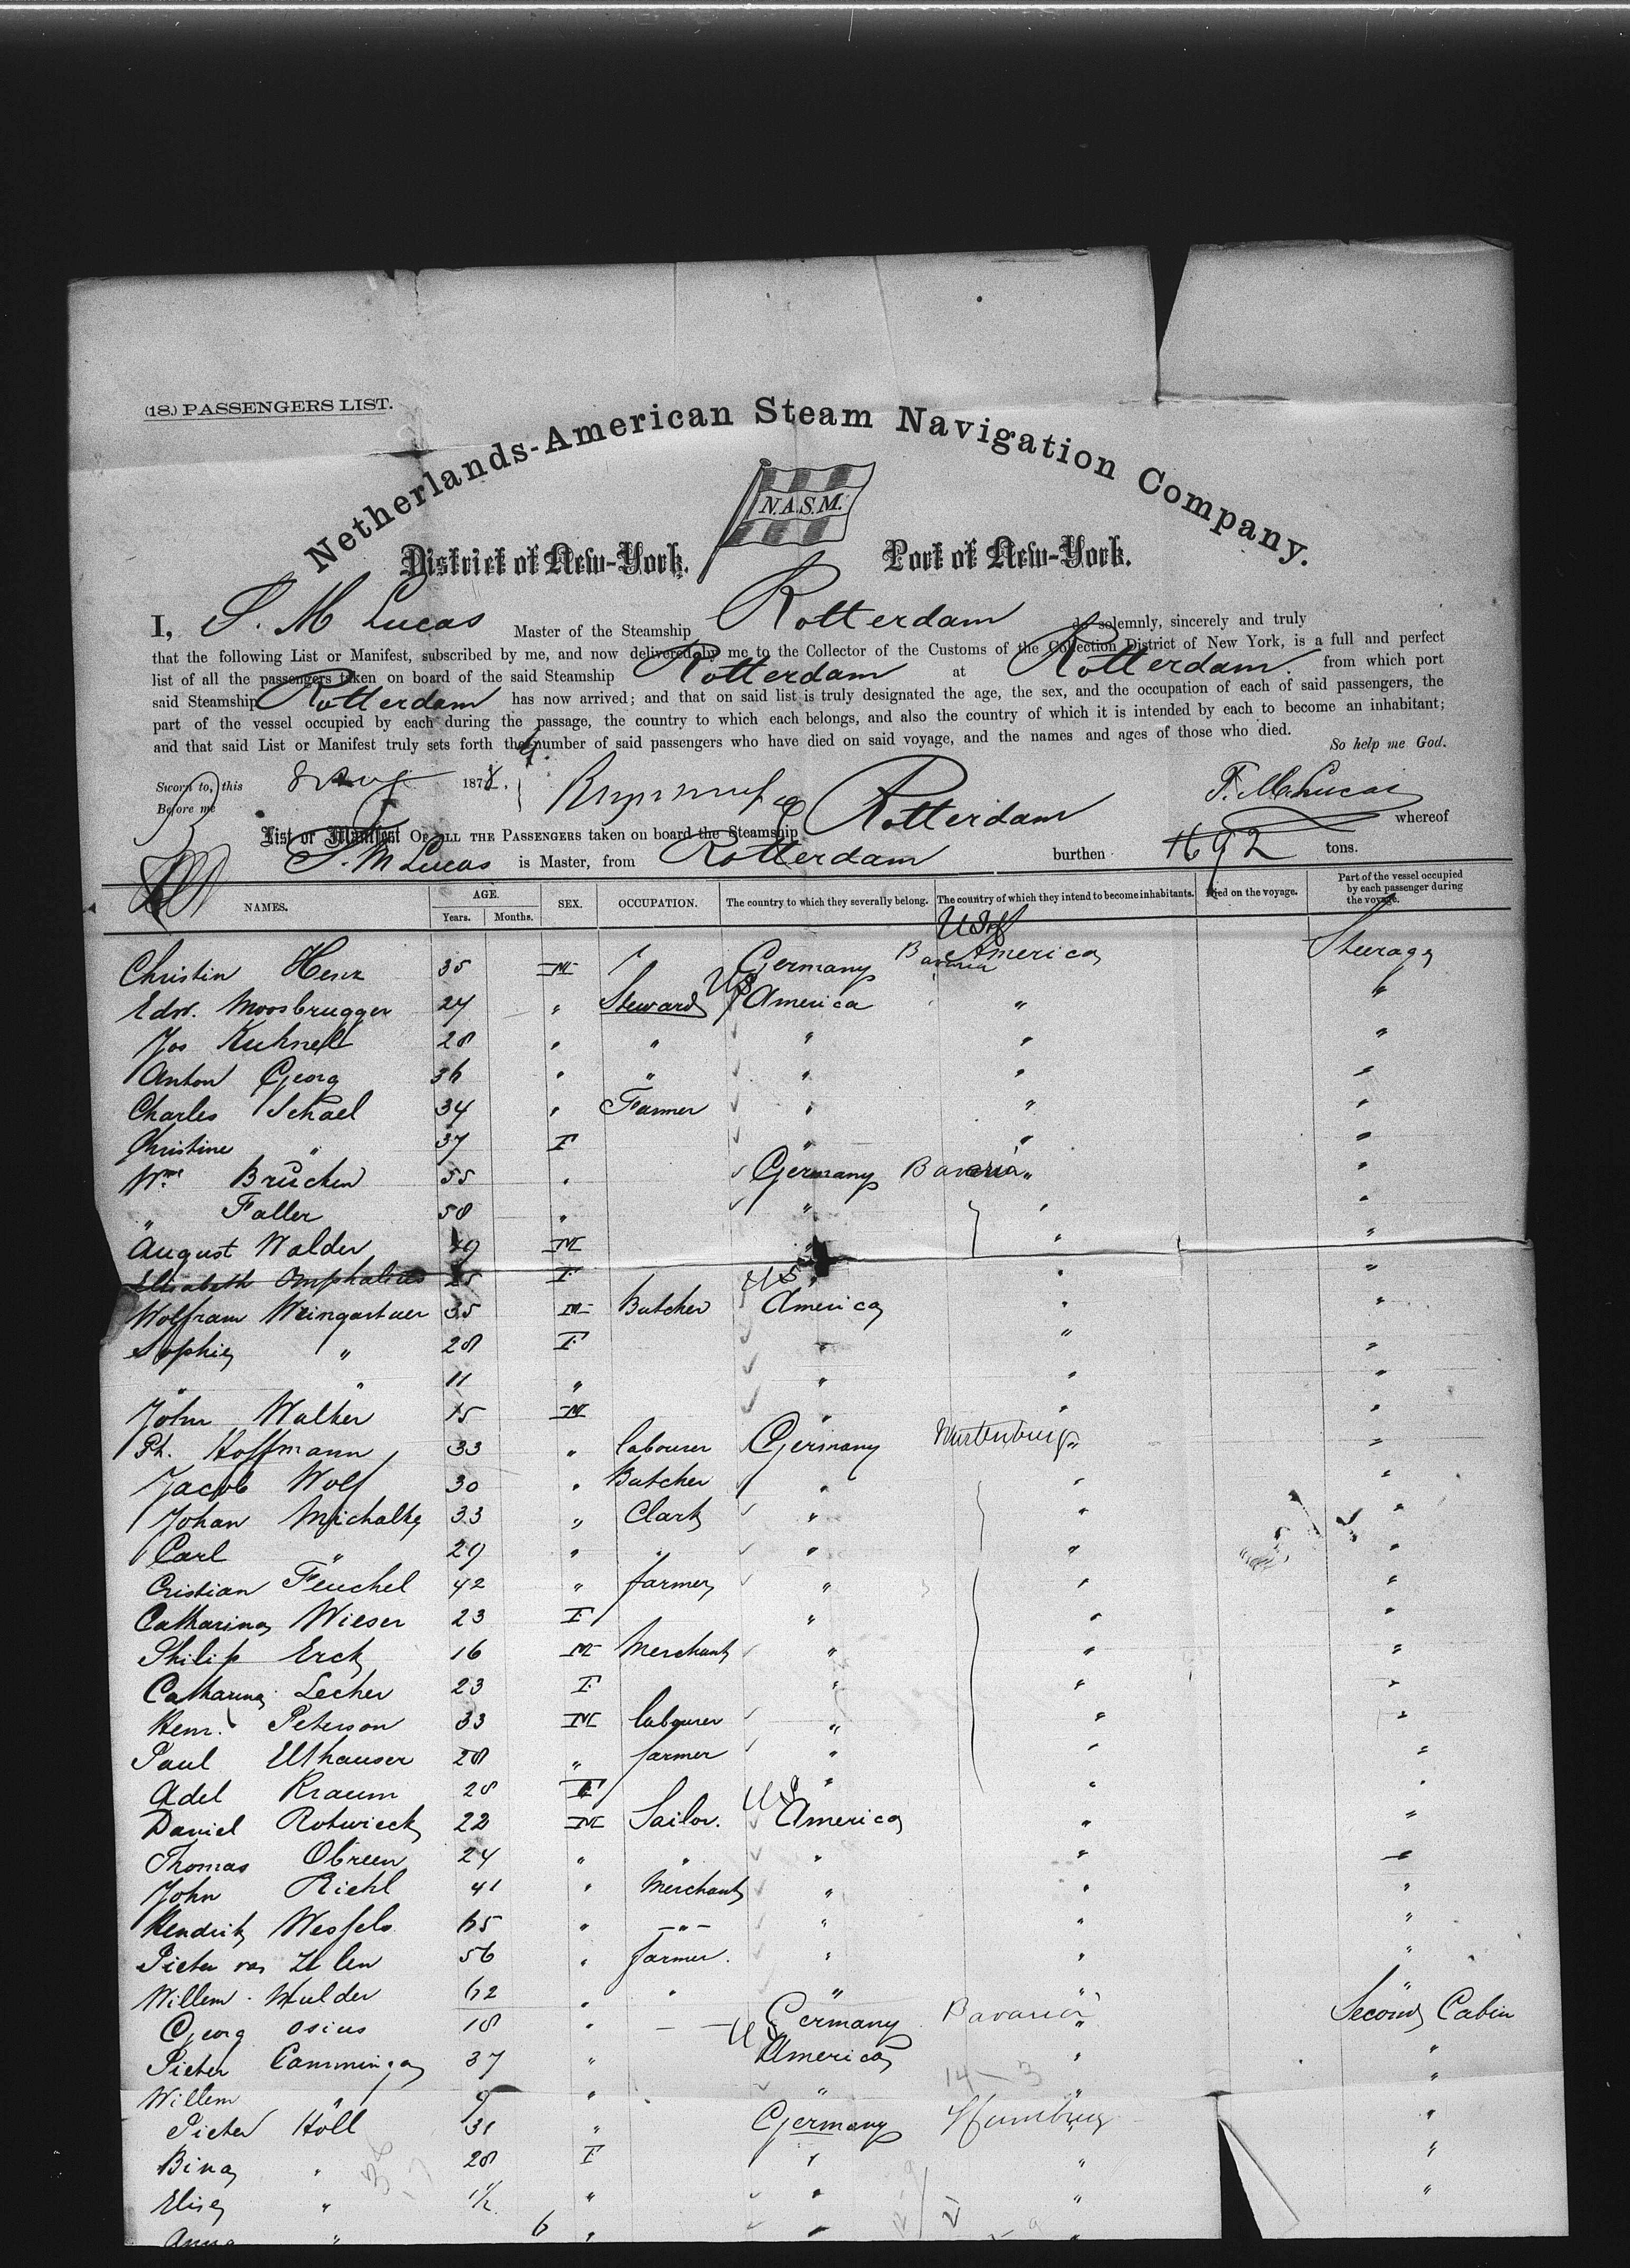 (18.) PASSENGERS LIST.
Netherlands-American Steam Navigation Company.
N.A.S.M.
District of New-York. Port of New-York.
I, S. M Lucas Master of the Steamship Rotterdam do solemnly, sincerely and truly
that the following List or Manifest, subscribed by me, and now delivered by me to the Collector of the Customs of the Collection District of New York, is a full and perfect
list of all the passengers taken on board of the said Steamship Rotterdam at Rotterdam. from which port
said Steamship Rotterdam has now arrived; and that on said list is truly designated the age, the sex, and the occupation of each of said passengers, the
part of the vessel occupied by each during the passage, the country to which each belongs, and also the country of which it is intended by each to become an inhabitant;
and that said List or Manifest truly sets forth the number of said passengers who have died on said voyage, and the names and ages of those who died.
So help me God.
Sworn to, this 8 Aug 187
Before me
List or Manifest OF ALL THE PASSENGERS taken on board the Steamship Rotterdam whereof
is Master, from Rotterdam burthen 1692 tons.
NAMES. AGE. Years. Months. SEX. OCCUPATION. The country to which they severally belong. The country of which they intend to become inhabitants. Died on the voyage. Part of the vessel occupied by each passenger during the voyage.
Christin 35 M Germany Bavaria America Steerage
Edw. Moosbrugger 27 " Steward US America " "
Jos Kuhnel 28 " " " " "
Anton Georg 36 " " " " "
Charles Schael 34 " Farmer " " "
Christine " 37 F " " "
Wme Brücken 55 " Germany Bavaria " "
" Faller 58 " " " "
August Walder 49 M " " "
Elisabeth Omphalius 25 F " " "
Wolfram Weingartner 35 M Butcher US America " "
Sophie " 28 F " " "
" " 11 " " " "
John Walker 15 M " " "
Ph. Hoffmann 33 " labourer Germany Wurtenburg " "
Jacob Wolf 30 " Butcher " " "
Johan Michalke 33 " Clark " " "
Carl " 29 " " " " "
Cristian Feuchel 42 " farmer " " "
Catharina Wieser 23 F " " "
Philip Erck 16 M Merchant " " "
Catharina Lecher 23 F " " "
Henr. Peterson 33 M labourer " " "
Paul Elthauser 28 " farmer " " "
Adel Kraum 28 F " " "
Daniel Rotwieck 22 M Sailor. US America " "
Thomas Obreen 24 " " " " "
John Riehl 41 " Merchant " " "
Hendrik Wessels 65 " -"- " " "
Pieter van 56 " farmer. " " "
Willem Mulder 62 " " " " "
Georg Osius 18 " Germany Bavaria " Second Cabin
Pieter Camminga 37 " US America " "
Willem " 9 " " " "
14 - 3
Pieter Holl 31 " Germany Hamburg "
Bina " 28 F " " "
Elise " 1½ " " " "
Anna " 6 " " "